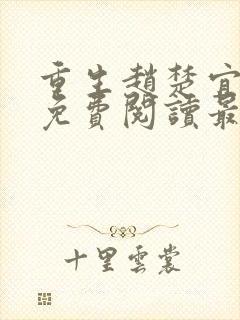 重生趙楚宜
免費閱讀最
十里雲裳